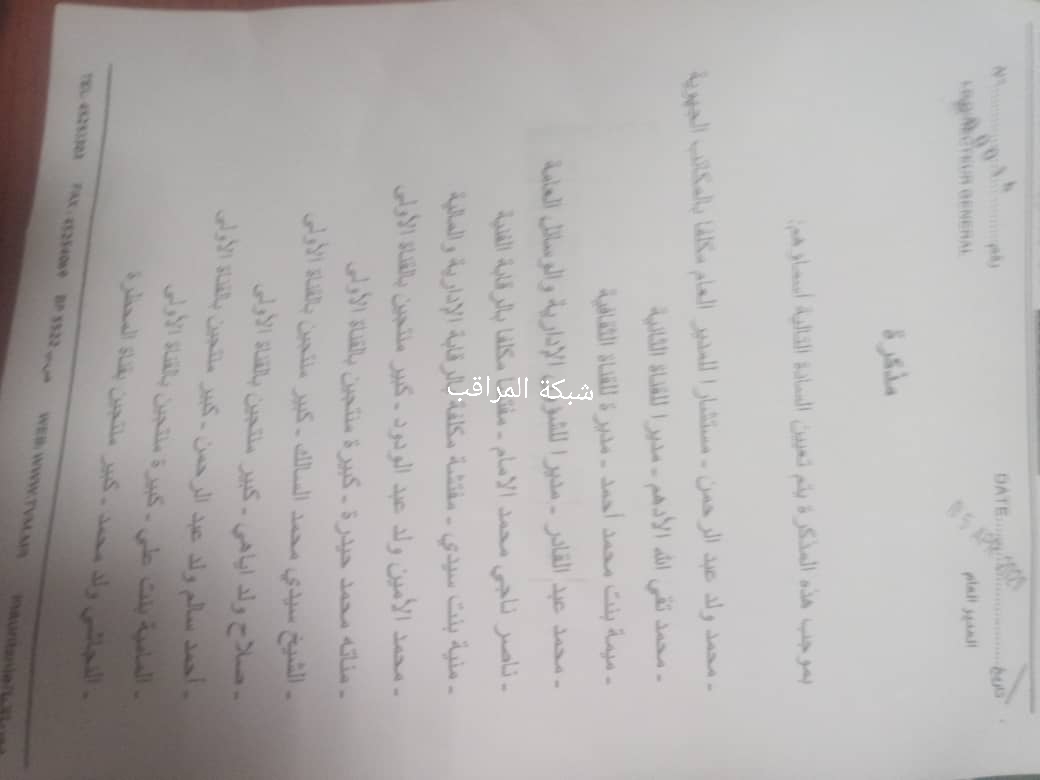 N° رقم
LE DIRECTEUR GENERAL
DATE تاريخ
المدير العام
مذكرة
بموجب هذه المذكرة يتم تعيين السادة التالية أسماؤهم:
- محمد ولد عبد الرحمن - مستشارا للمدير العام مكلفا بالمكاتب الجهوية
- محمد تقي الله الأدهم - مديرا للقناة الثانية
- ميمة بنت محمد أحمد - مديرة للقناة الثقافية
- محمد عبد القادر - مديرا للشؤون الإدارية والوسائل العامة
- ناصر ناجي محمد الامام - مفتشا مكلفا بالرقابة الفنية
- منية بنت سيدي - مفتشة مكلفة بالرقابة الإدارية والمالية
- محمد الأمين ولد عبد الودود - كبير منتجين بالقناة الأولى
- مفاته محمد حيدرة - كبيرة منتجين بالقناة الأولى
- الشيخ سيدي محمد السالك - كبير منتجين بالقناة الأولى
- صلاح ولد اياهي - كبير منتجين بالقناة الأولى
- أحمد سالم ولد عبد الرحمن - كبير منتجين بالقناة الأولى
- المامية بنت علي - كبيرة منتجين بالقناة الأولى
- النجاشي ولد محمد - كبير منتجين بقناة المحظرة
TEL: 45253303 FAX: 45254069 BP 5522 ص.ب WEB WWW.TVM.MR
شبكة المراقب